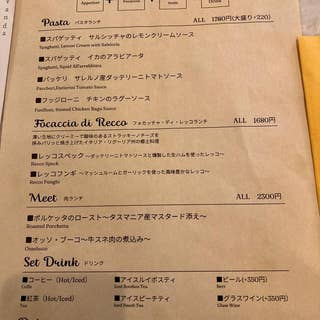 Pasta パスタランチ ALL 1780円(大盛り+220)
■スパゲッティ サルシッチャのレモンクリームソース
Spaghetti, Lemon Cream with Salsiccia
■スパゲッティ イカのアラビアータ
Spaghetti, Squid All'arrabbiata
■パッケリ サレルノ産ダッテリーニトマトソース
Paccheri, Datterini Tomato Sauce
■フッジローニ チキンのラグーソース
Fusilloni, Stewed Chicken Ragu Sauce
Focaccia di Recco フォカッチャ・ディ・レッコランチ ALL 1680円
薄い生地にクリーミーで酸味のあるストラッキーノチーズを
挟みパリッと焼き上げたイタリア・リグーリア州の郷土料理
■レッコスペック ~ダッテリーニトマトソースと燻製した生ハムを使ったレッコ~
Recco Speck
■レッコフンギ ~マッシュルームとガーリックを使った風味豊かなレッコ~
Recco Funghi
Meet 肉ランチ ALL 2300円
■ポルケッタのロースト~タスマニア産マスタード添え~
Roasted Porchetta
■オッソ・ブーコ~牛スネ肉の煮込み~
Ossobuco
Set Drink ドリンク
■コーヒー (Hot/Iced) ■アイスルイボスティ ■ビール(+350円)
Iced Rooibos Tea Beer
■紅茶 (Hot/Iced) ■アイスピーチティ ■グラスワイン(+350円)
Tea Iced Peach Tea Glass Wine